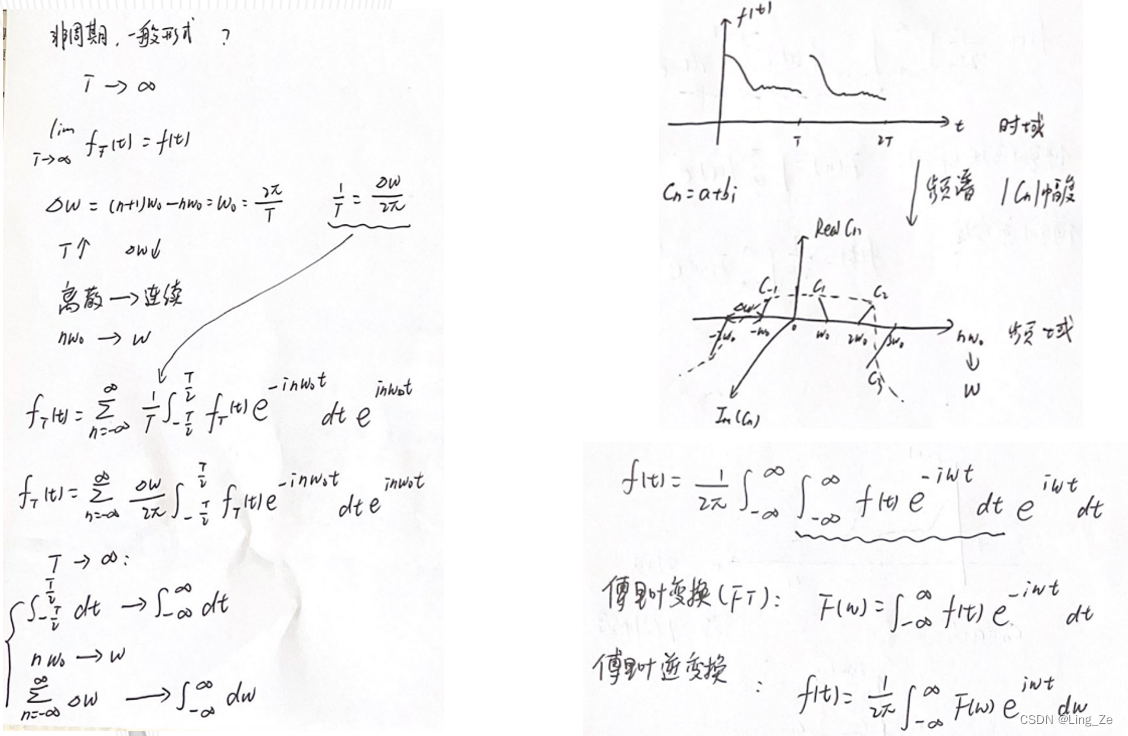 非周期，一般形式 ？
T → ∞
lim T→∞ f_T(t) = f(t)
Δw = (n+1)w₀ - nw₀ = w₀ = 2π/T    1/T = Δw/2π
T↑  Δw↓
离散 → 连续
nw₀ → w
f_T(t) = ∑_{n=-∞}^{∞} 1/T ∫_{-T/2}^{T/2} f_T(t) e^{-inw₀t} dt e^{inw₀t}
f_T(t) = ∑_{n=-∞}^{∞} Δw/2π ∫_{-T/2}^{T/2} f_T(t) e^{-inw₀t} dt e^{inw₀t}
T → ∞ :
∫_{-T/2}^{T/2} dt → ∫_{-∞}^{∞} dt
nw₀ → w
∑_{n=-∞}^{∞} Δw → ∫_{-∞}^{∞} dw
f(t)
T  2T  t  时域
Cn = a+bi  频谱  |Cn|幅度
Real Cn
C₋₁  C₁  C₂
Δw
-2w₀  -w₀  0  w₀  2w₀  3w₀  nw₀  频域
C₃  ↓
w
Im(Cn)
f(t) = 1/2π ∫_{-∞}^{∞} ∫_{-∞}^{∞} f(t) e^{-iwt} dt e^{iwt} dt
傅里叶变换(FT)： F(w) = ∫_{-∞}^{∞} f(t) e^{-iwt} dt
傅里叶逆变换 ： f(t) = 1/2π ∫_{-∞}^{∞} F(w) e^{iwt} dw
CSDN @Ling_Ze